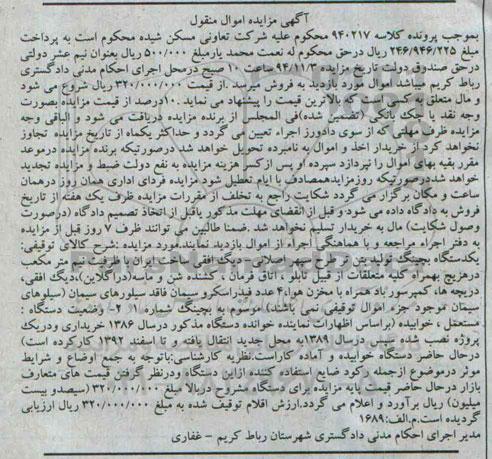 آگهی مزایده اموال منقول
بموجب پرونده کلاسه ۹۴۰۲۱۷ محکوم علیه شرکت تعاونی مسکن شیده محکوم است به پرداخت
مبلغ ۲۴۶/۹۴۶/۲۲۵ ریال درحق محکوم له نعمت محمد یارمبلغ ۵۰۰/۰۰۰ ریال بعنوان نیم عشر دولتی
درحق صندوق دولت تاریخ مزایده ۹۴/۱۱/۳ ساعت ۱۰ صبح درمحل اجرای احکام مدنی دادگستری
رباط کریم میباشد اموال مورد بازدید به فروش میرسد .از قیمت ۳۲۰/۰۰۰/۰۰۰ ریال شروع می شود
و مال متعلق به کسی است که بالاترین قیمت را پیشنهاد می نماید .۱۰درصد از قیمت مزایده بصورت
وجه نقد یا چک بانکی (تضمین شده)فی المجلس از برنده مزایده دریافت می شود و الباقی وجه
مزایده ظرف مهلتی که از سوی دادورز اجراء تعیین می گردد و حداکثر یکماه از تاریخ مزایده تجاوز
نخواهد کرد از خریدار اخذ و اموال به نامبرده تحویل خواهد شد.درصورتیکه برنده مزایده درموعد
مقرر بقیه بهای اموال را نپردازد سپرده او پس از کسر هزینه مزایده به نفع دولت ضبط و مزایده تجدید
خواهد شد.درصورتیکه روزمزایده‌مصادف با ایام تعطیل شود مزایده فردای اداری همان روز درهمان
ساعت و مکان برگزار می گردد شکایت راجع به تخلف از مقررات مزایده ظرف یک هفته از تاریخ
فروش به دادگاه داده می شود و قبل از انقضای مهلت مذکور یاقبل از اتخاذ تصمیم دادگاه (درصورت
وصول شکایت) مال به خریدار تسلیم نخواهد شد .ضمنا طالبین می توانند ظرف ۷ روز قبل از مزایده
به دفتر اجراء مراجعه و با هماهنگی اجراء از اموال بازدید نمایند.مورد مزایده :شرح کالای توقیفی:
یکدستگاه بچینگ تولید بتن از طرح سهر اصلاحی – دیگ افقی ساخت ایران با ظرفیت ۱ متر مکعب
درهزیچ بهمراه کلیه متعلقات از قبیل تابلو ، اتاق فرمان ، کشنده شن و ماسه(دراگلاین)،دیگ افقی،
دریچه ها، کمپرسور باد همراه با مخزن هوا، ۴ عدد فیدراسکرو سیمان فاقد سیلورهای سیمان (سیلوهای
سیمان موجود جزء اموال توقیفی نمی باشند) ،موسوم به بچینگ شماره ۱. ۲- وضعیت دستگاه :
مستعمل ، خوابیده (براساس اظهارات نماینده خوانده دستگاه مذکور درسال ۱۳۸۶ خریداری ودریک
پروژه نصب شده سپس درسال ۱۳۸۹به محل جدید انتقال یافته و تا اسفند ۱۳۹۲ کارکرده است)
درحال حاضر دستگاه خوابیده و آماده کاراست.نظریه کارشناسی:باتوجه به جمع اوضاع و شرایط
موثر درموضوع ازجمله رکود ضایع استفاده کننده ازاین دستگاه ودرنظر گرفتن قیمت های متعارف
بازار درحال حاضر قیمت پایه مزایده برای دستگاه مشروح دربالا مبلغ ۳۲۰/۰۰۰/۰۰۰ (سیصدو بیست
میلیون) ریال برآورد و اعلام می گردد.ارزش اقلام توقیف شده به مبلغ ۳۲۰/۰۰۰/۰۰۰ ریال ارزیابی
گردیده است.م.الف:۱۶۸۹
مدیر اجرای احکام مدنی دادگستری شهرستان رباط کریم – غفاری